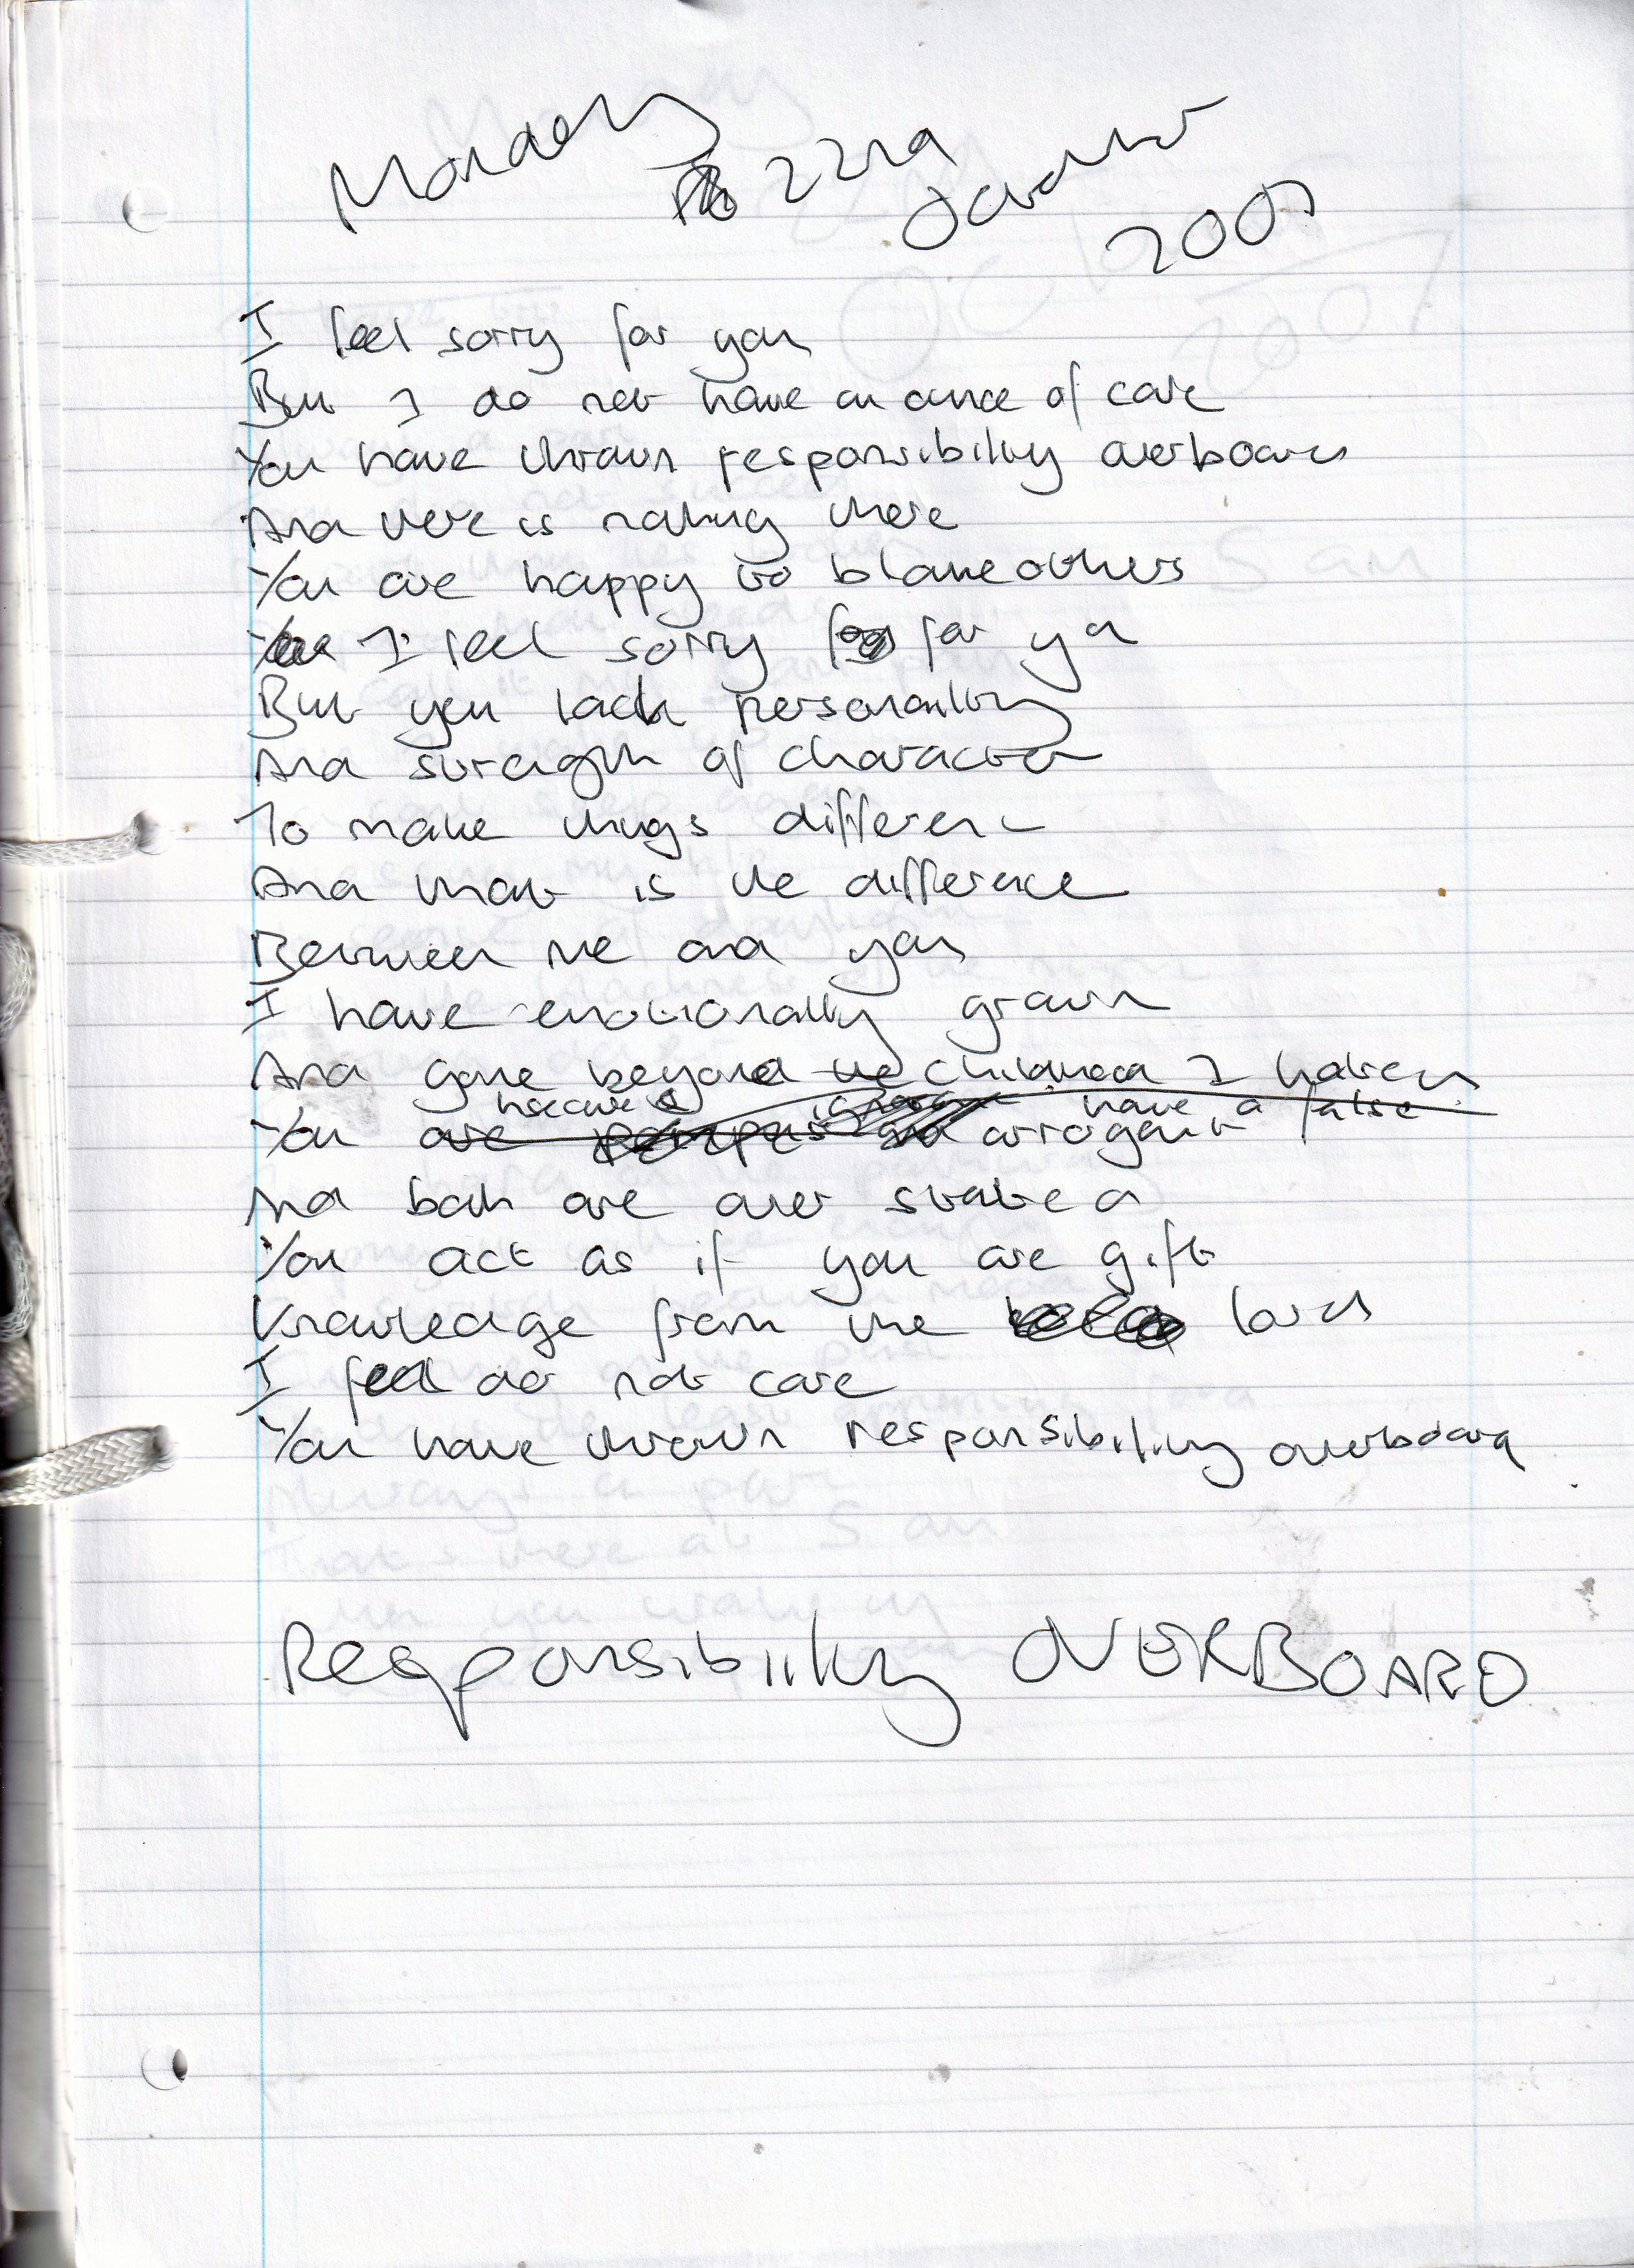 Monday 22nd October 2007
I feel sorry for you
But I do not have an ounce of care
You have thrown responsibility overboard
And there is nothing there
You are happy to blame others
I feel sorry for you
But you lack personality
And strength of character
To make things different
And that is the difference
Between me and you
I have emotionally grown
And gone beyond the childhood I
insecure have a false
You are arrogant
And both are over stated
You act as if you are gift
Knowledge from the lord
I feel do not care
You have thrown responsibility overboard
Responsibility OVERBOARD